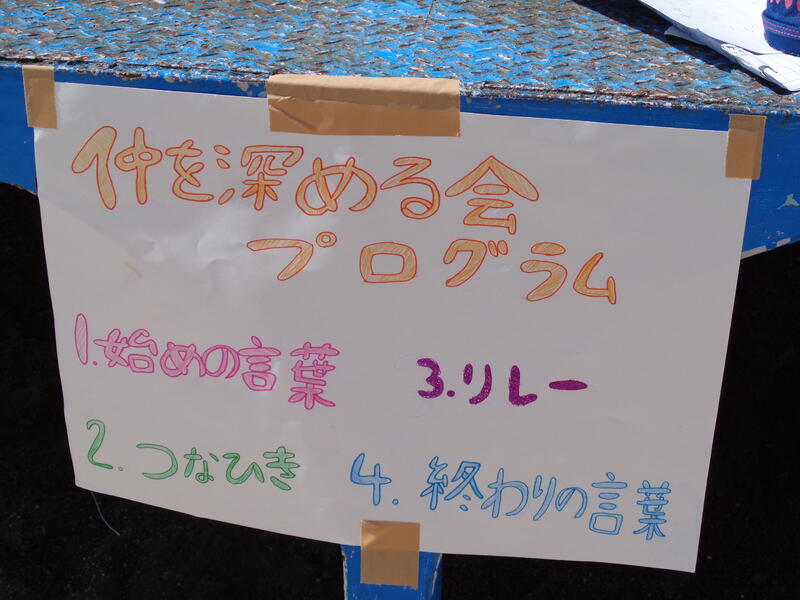 仲を深める会
プログラム
1.始めの言葉
2.つなひき
3.リレー
4.終わりの言葉